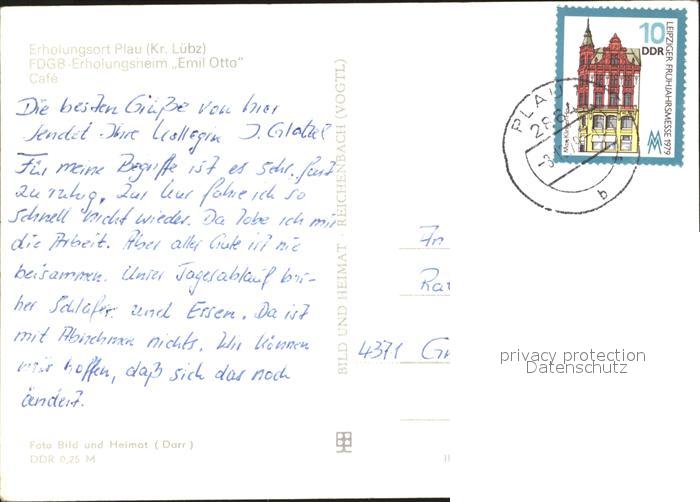 Erholungsort Plau (Kr. Lübz)
FDGB-Erholungsheim „Emil Otto"
Café
Die besten Grüße von hier
sendet Ihre Kollegin J. Glatzel
Für meine Begriffe ist es sehr, fast
zu ruhig. Zur Kur fahre ich so
schnell nicht wieder. Da lobe ich mir
die Arbeit. Aber alles Gute ist nie
beisammen. Unser Tagesablauf bis-
her Schlafen und Essen. Da ist
mit Abnehmen nichts. Wir können
nur hoffen, daß sich das noch
ändert.
Foto Bild und Heimat (Darr)
DDR 0,25 M
BILD UND HEIMAT · REICHENBACH (VOGTL)
An
Rat
4371 Gr
10
DDR
LEIPZIGER FRÜHJAHRSMESSE 1979
PLAU
286
b
privacy protection
Datenschutz